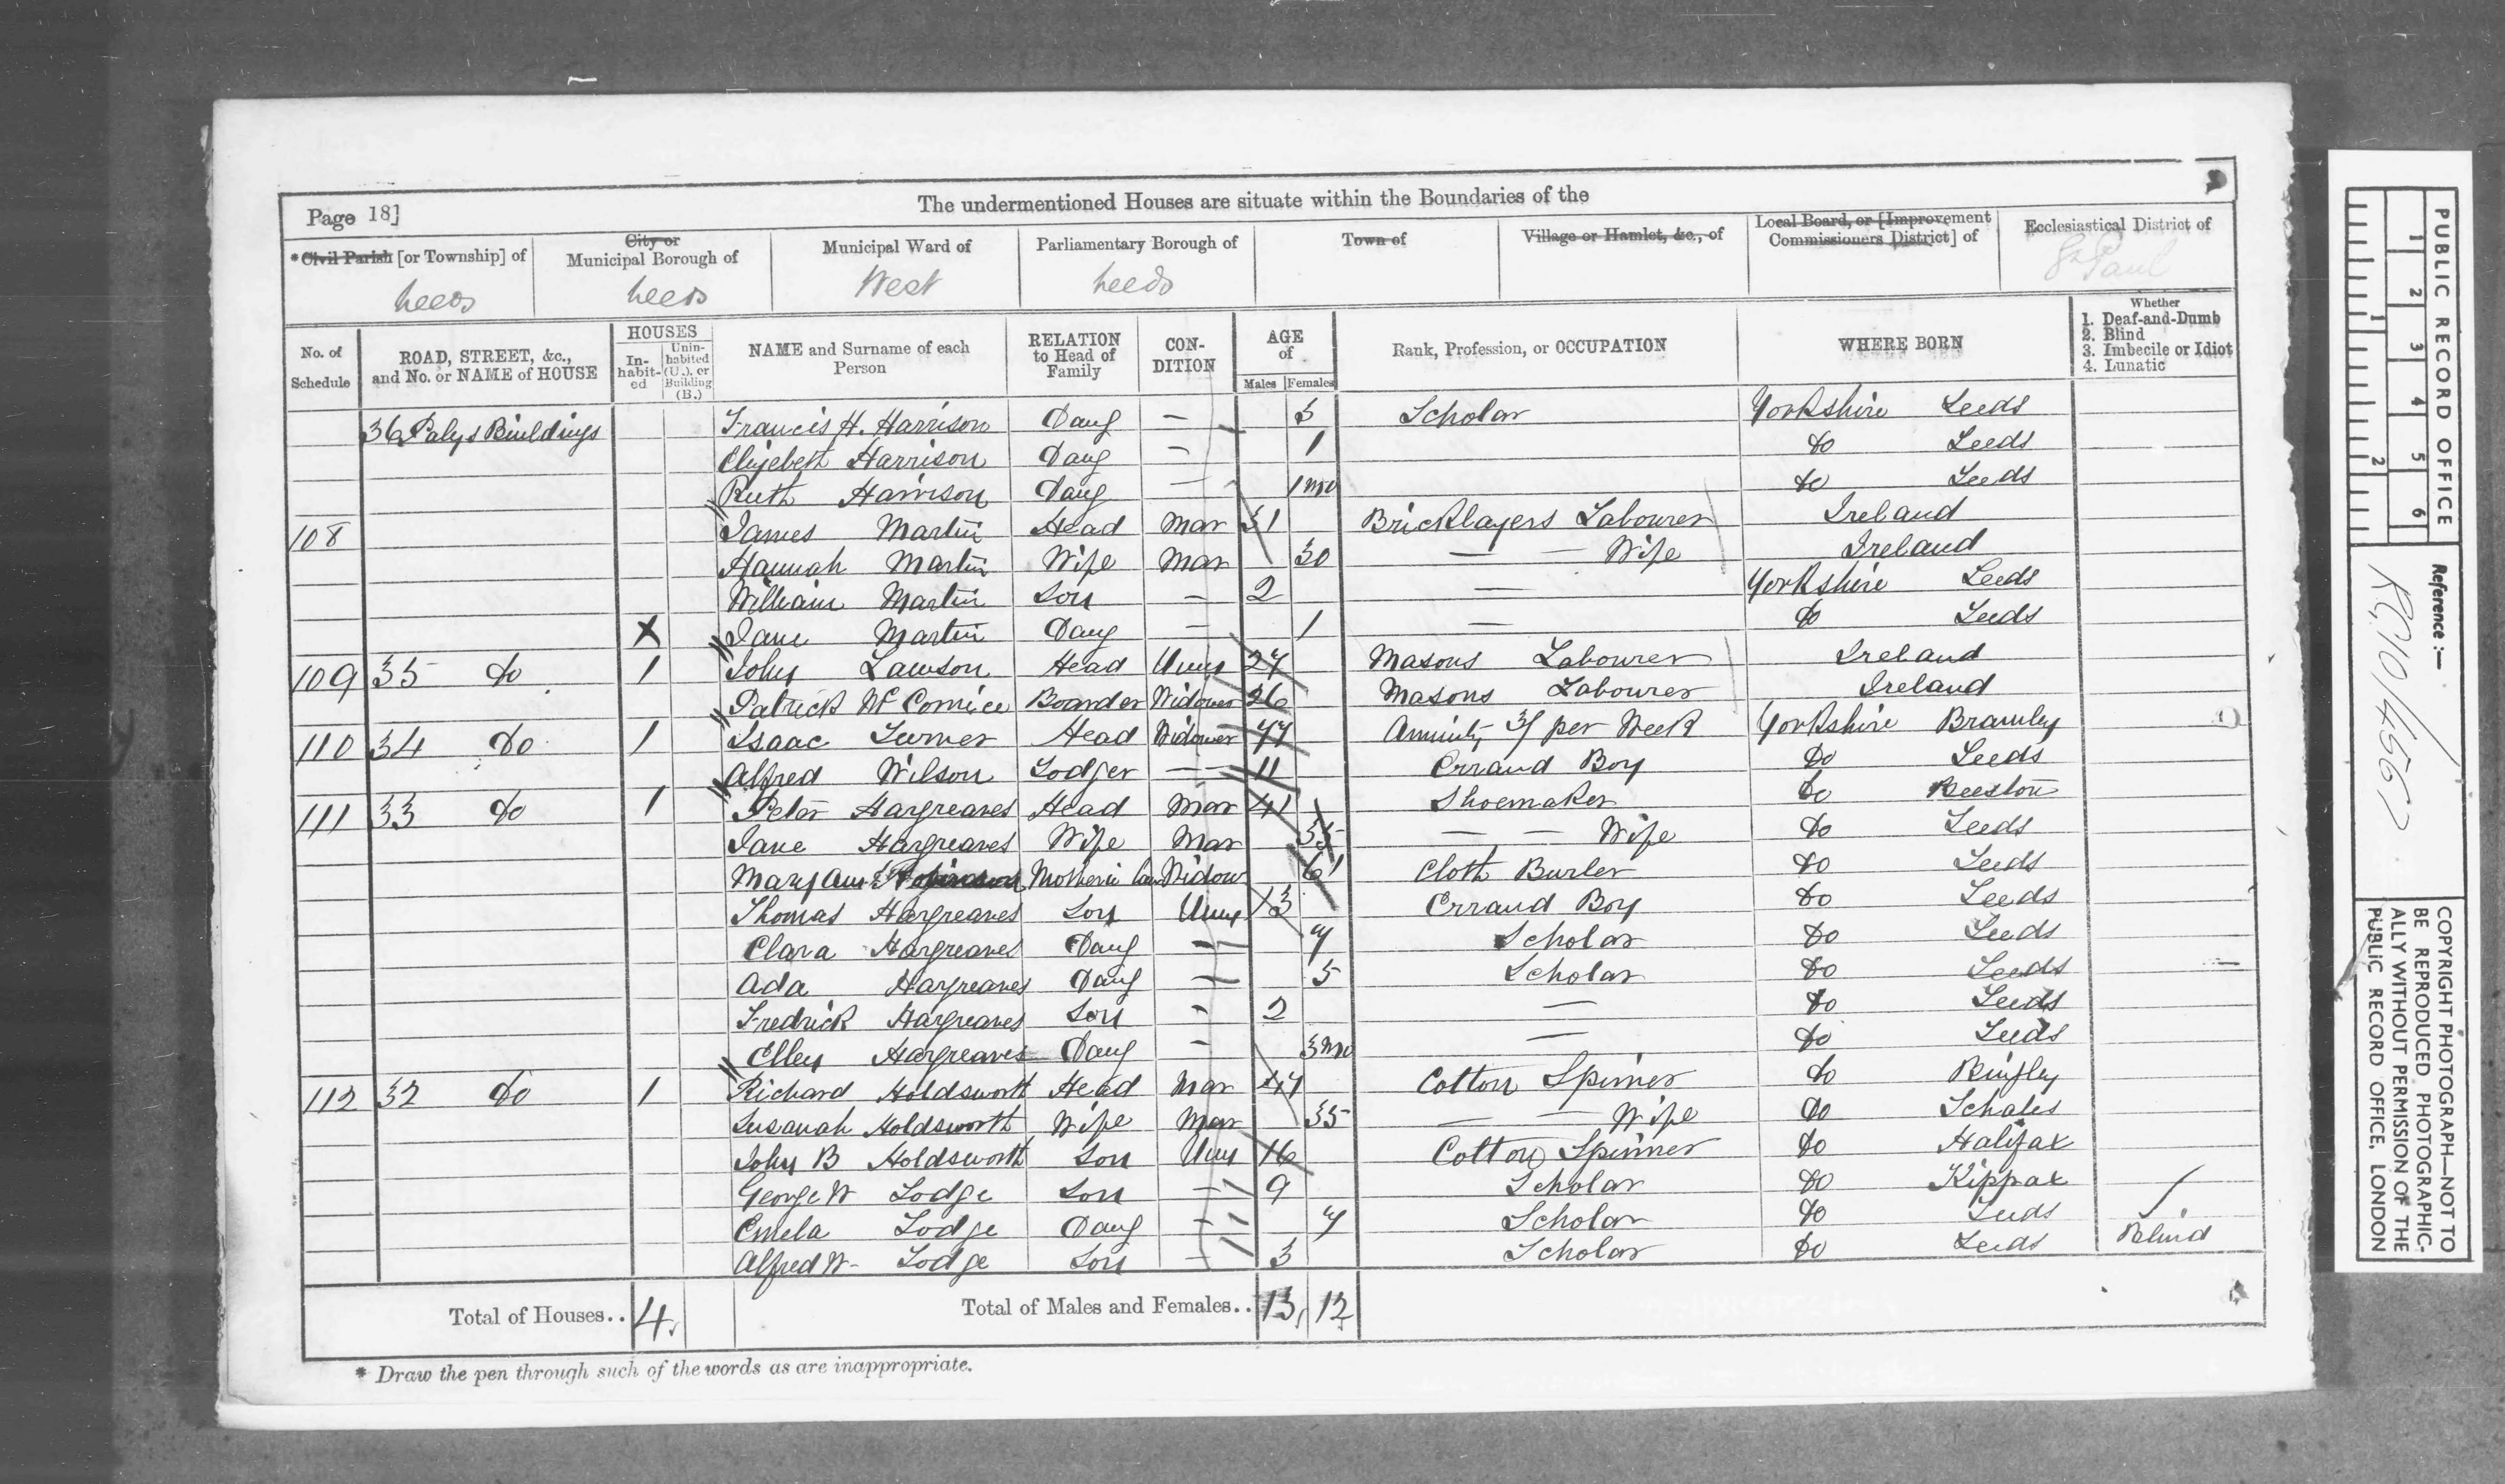 The undermentioned Houses are situate within the Boundaries of the
Page 18]
*Civil Parish [or Township] of
City or Municipal Borough of
Municipal Ward of
Parliamentary Borough of
Town of
Village or Hamlet, &c., of
Local Board, or [Improvement Commissioners District] of
Ecclesiastical District of
Leeds Leeds West Leeds St Paul
No. of Schedule
ROAD, STREET, &c., and No. or NAME of HOUSE
HOUSES
In-habit-ed
Unin-habited (U.), or Building (B.)
NAME and Surname of each Person
RELATION to Head of Family
CON-DITION
AGE of
Males Females
Rank, Profession, or OCCUPATION
WHERE BORN
Whether
1. Deaf-and-Dumb
2. Blind
3. Imbecile or Idiot
4. Lunatic
36 Buildings Francis H. Harrison Daug — 5 Scholar Yorkshire Leeds
Elizebeth Harrison Daug — 1 do Leeds
Ruth Harrison Daug — 1 mo do Leeds
108 James Martin Head Mar 31 Bricklayers Labourer Ireland
Hannah Martin Wife Mar 30 — — Wife Ireland
William Martin Son — 2 — Yorkshire Leeds
X Jane Martin Daug — 1 — do Leeds
109 35 do 1 John Lawson Head Unm 27 Masons Labourer Ireland
Patrick Mc Boarder Widower 26 Masons Labourer Ireland
110 34 do 1 Isaac Turner Head Widower 77 Annuity 3/ per Week Yorkshire Bramley
Alfred Wilson Lodger — 11 Errand Boy do Leeds
111 33 do 1 Peter Hargreaves Head Mar 41 Shoemaker do Beeston
Jane Hargreaves Wife Mar 35 — — Wife do Leeds
Mary Ann Robinson Mother in law Widow 61 Cloth Burler do Leeds
Thomas Hargreaves Son Unm 13 Errand Boy do Leeds
Clara Hargreaves Daug — 7 Scholar do Leeds
Ada Hargreaves Daug — 5 Scholar do Leeds
Fredrick Hargreaves Son — 2 — do Leeds
Ellen Hargreaves Daug — 3 mo — do Leeds
112 32 do 1 Richard Holdsworth Head Mar 47 Cotton Spinner do Bingley
Susanah Holdsworth Wife Mar 35 — — Wife do Scholes
John B Holdsworth Son Unm 16 Cotton Spinner do Halifax
George W Lodge Son — 9 Scholar do Kippax
Emela Lodge Daug — 7 Scholar do Leeds
Alfred W Lodge Son — 3 Scholar do Leeds Blind
Total of Houses.. 4
Total of Males and Females.. 13 12
* Draw the pen through such of the words as are inappropriate.
PUBLIC RECORD OFFICE
1 2 3 4 5 6
1 2
Reference :—
RG 10/4567
COPYRIGHT PHOTOGRAPH—NOT TO
BE REPRODUCED PHOTOGRAPHIC-
ALLY WITHOUT PERMISSION OF THE
PUBLIC RECORD OFFICE, LONDON